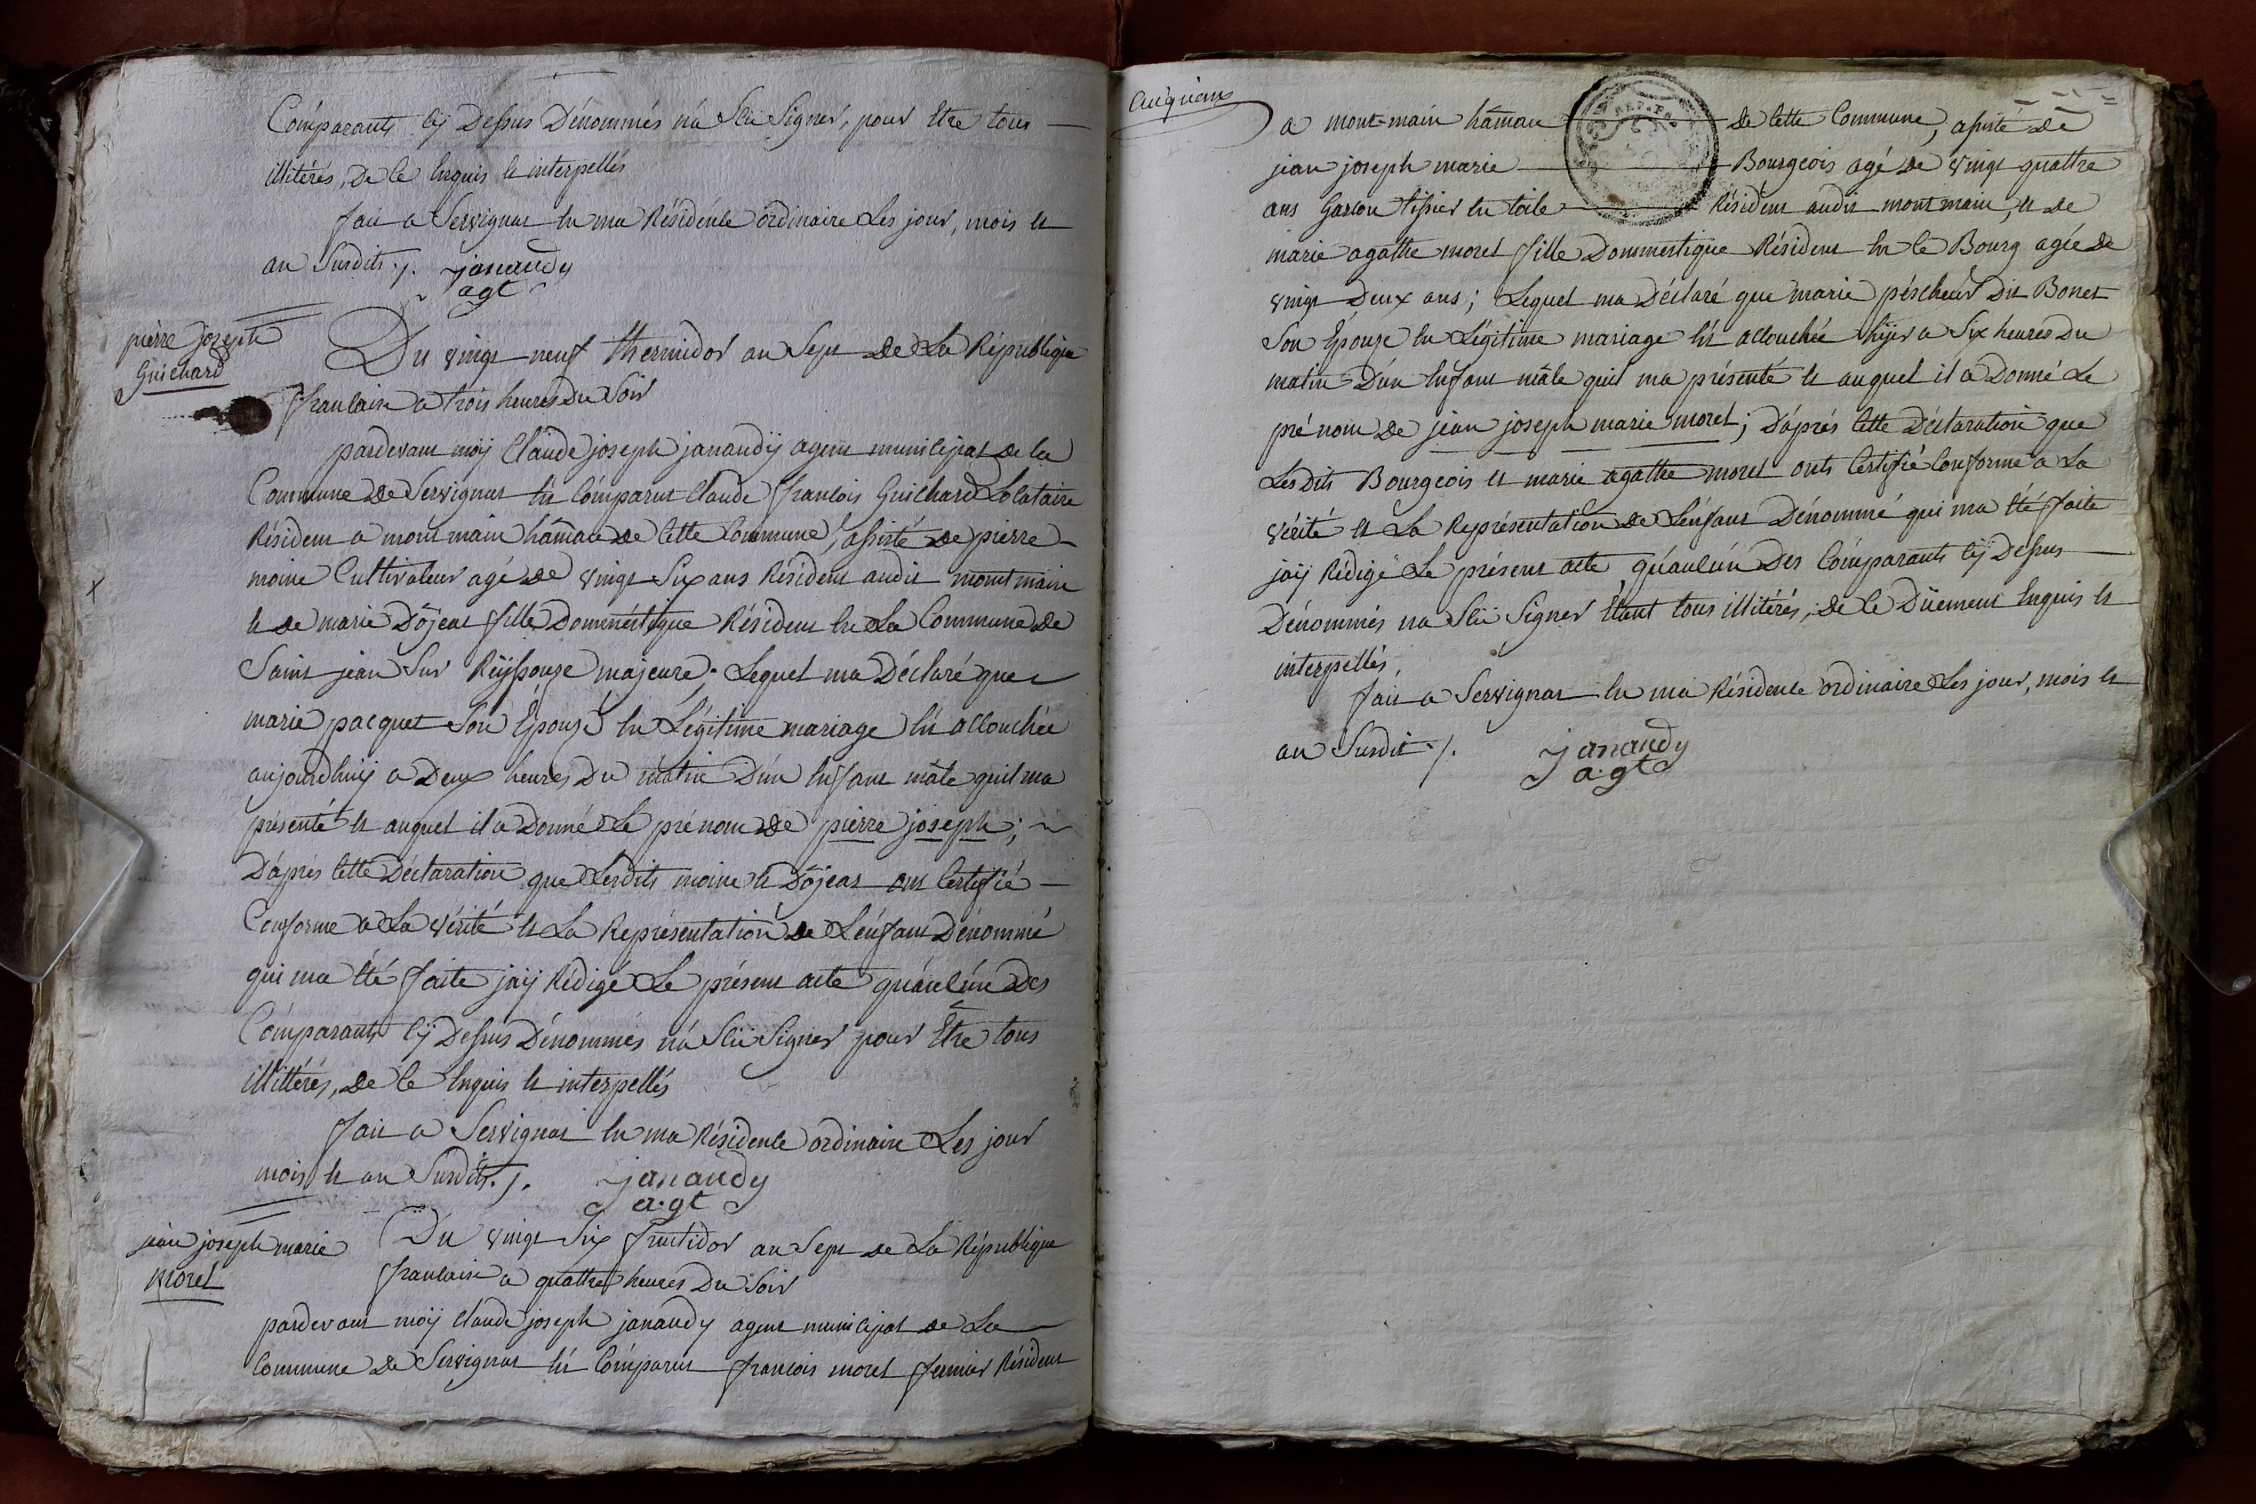 Comparants cÿ Dessus Dénommés n'a Sçu Signer, pour Etre tous
illitérés, De Ce Enquis et interpellés
fait a Servignat En ma Résidence ordinaire Les jour, mois et
an Susdits ./. janaudy
agt
pierre joseph
Guichard
Du vingt neuf thermidor an Sept De La République
francaise a trois heures Du Soir
pardevant moÿ Claude joseph janaudÿ agent municipal de la
Commune De Servignat Est Comparut Claude francois Guichard Locataire
Résident a mont main hâmau de Cette Commune, assisté de pierre
moine Cultivateur agé de vingt Six ans Résident audit mont main
et de marie Dôjeat fille Domméstique Résident En La Commune de
Saint jean Sur Reÿssouze majeure. Lequel ma Déclaré que
marie pacquet Son Epouze En Légitime mariage Est accouchée
aujourdhuÿ a Deux heures Du matin D'un Enfant mâle quil ma
présenté et auquel il a Donné Le prénom de pierre joseph;
D'aprés Cette Déclaration que Lesdits moine et Dôjeat ont Certifié
Conforme a La vérité et La Représentation De L'énfant Dénommé
qui ma Eté faite jaÿ Rédigé Le présent acte qu'aucun Des
Comparants cÿ Dessus Dénommés n'a Sçu Signer pour Etre tous
illittérés, De Ce Enquis et interpellés
fait a Servignat En ma Résidence ordinaire Les jour
mois et an Susdits ./. janaudy
a.gt
jean joseph marie
morel
Du vingt Six fructidor an Sept de La République
francaise a quattre heures Du Soir
pardevant moÿ Claude joseph janaudy agent municipal de La
Commune de Servignat Est Comparut francois morel fermier Résident
a mont-main hâmau de Cette Commune, assisté de
jean joseph marie Bourgeois agé de vingt quattre
ans Garcon tissier En toile Résident audit mont main, et de
marie agathe morel fille Dommestique Résident En Ce Bourg agée de
vingt Deux ans; Lequel ma Déclaré que marie péscheur Dit Bonet
Son Epouze En Légitime mariage Est accouchée hÿer a Six heures Du
matin D'un Enfant mâle quil ma présenté et auquel il a Donné Le
pré nom De jean joseph marie morel; D'aprés Cette Déclaration que
LesDits Bourgeois et marie agathe morel onts Certifié Conforme a La
vérité et La Représentation De L'énfant Dénommé qui ma Eté faite
jaÿ Rédigé Le présent acte qu'aucun Des Comparants cÿ Dessus
Dénommés na Sçu Signer Etant tous illitérés, de Ce Düement Enquis et
interpellés.
fait a Servignat En ma Résidence ordinaire Les jour, mois et
an Susdit ./. janaudy
a.gt